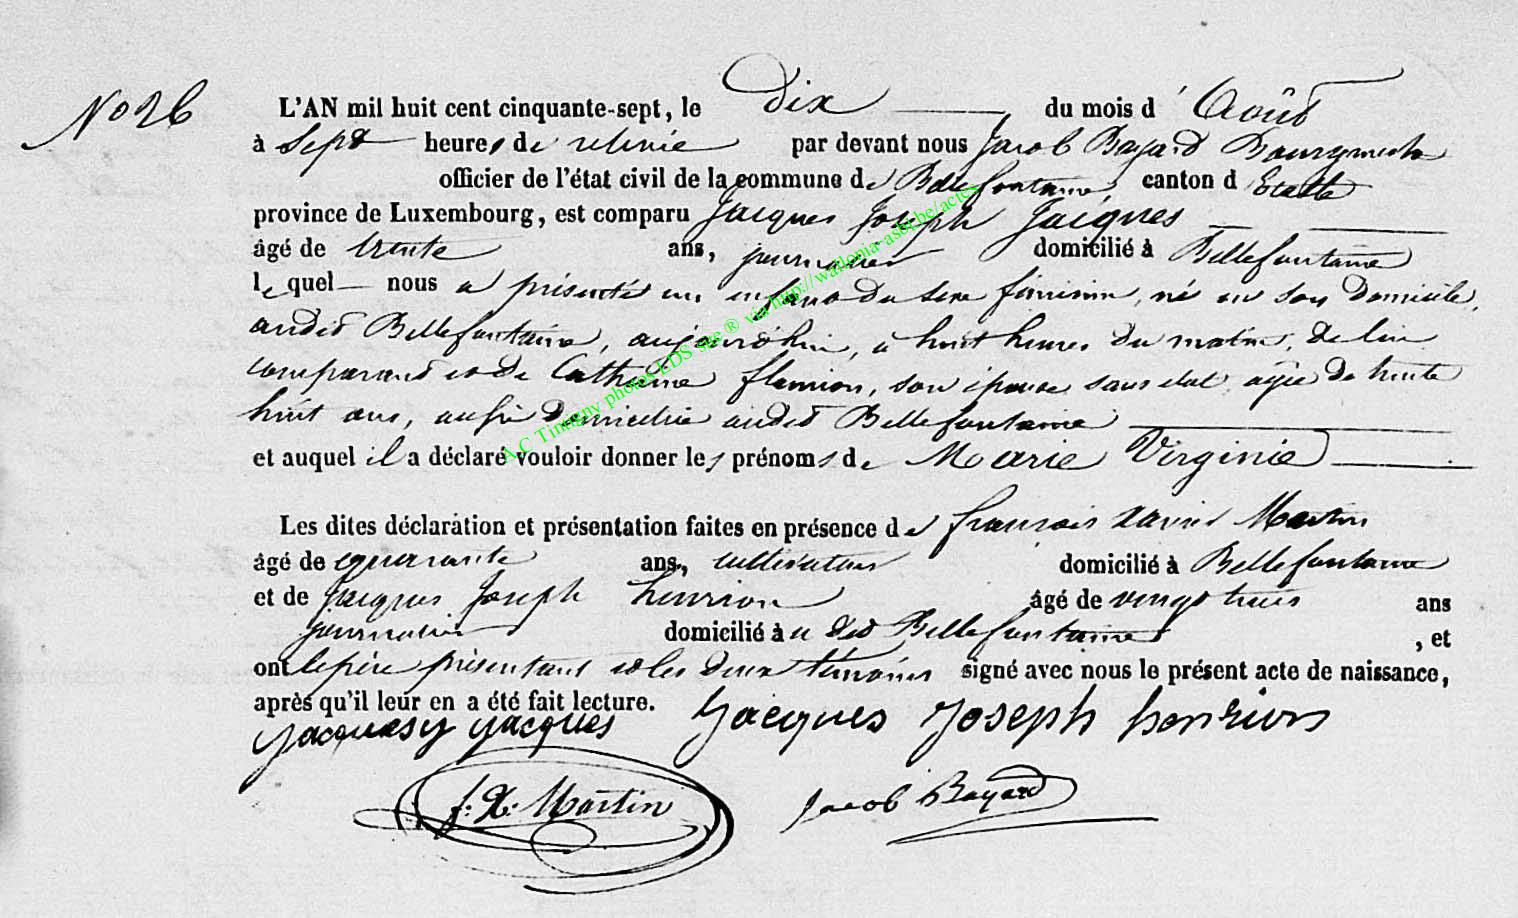 No 26
L'AN mil huit cent cinquante-sept, le dix du mois d'Août
à sept heures de relevée par devant nous Jacob Bayard Bourgmestre
officier de l'état civil de la commune de Bellefontaine, canton d'Etalle
province de Luxembourg, est comparu Jacques Joseph Jacques
âgé de trente ans, journalier domicilié à Bellefontaine
lequel nous a présenté un enfant du sexe féminin, né en son domicile,
audit Bellefontaine, aujourd'hui, à huit heures du matin, de lui
comparant et de Catherine flamion, son épouse sans état agée de trente
huit ans, aussi domiciliée audit Bellefontaine
et auquel il a déclaré vouloir donner les prénoms de Marie Virginie
Les dites déclaration et présentation faites en présence de françois Xavier Martin
âgé de quarante ans, cultivateur domicilié à Bellefontaine
et de Jacques Joseph henrion âgé de vingt trois ans
journalier domicilié à u dit Bellefontaine, et
ont le père présentant et les deux témoins signé avec nous le présent acte de naissance,
après qu'il leur en a été fait lecture.
Jacquesy Jacques Jacques Joseph henrion
f. X. Martin Jacob Bayard
A.C Tintigny photos LDS site ® via http://wallonia-asbl.be/actes